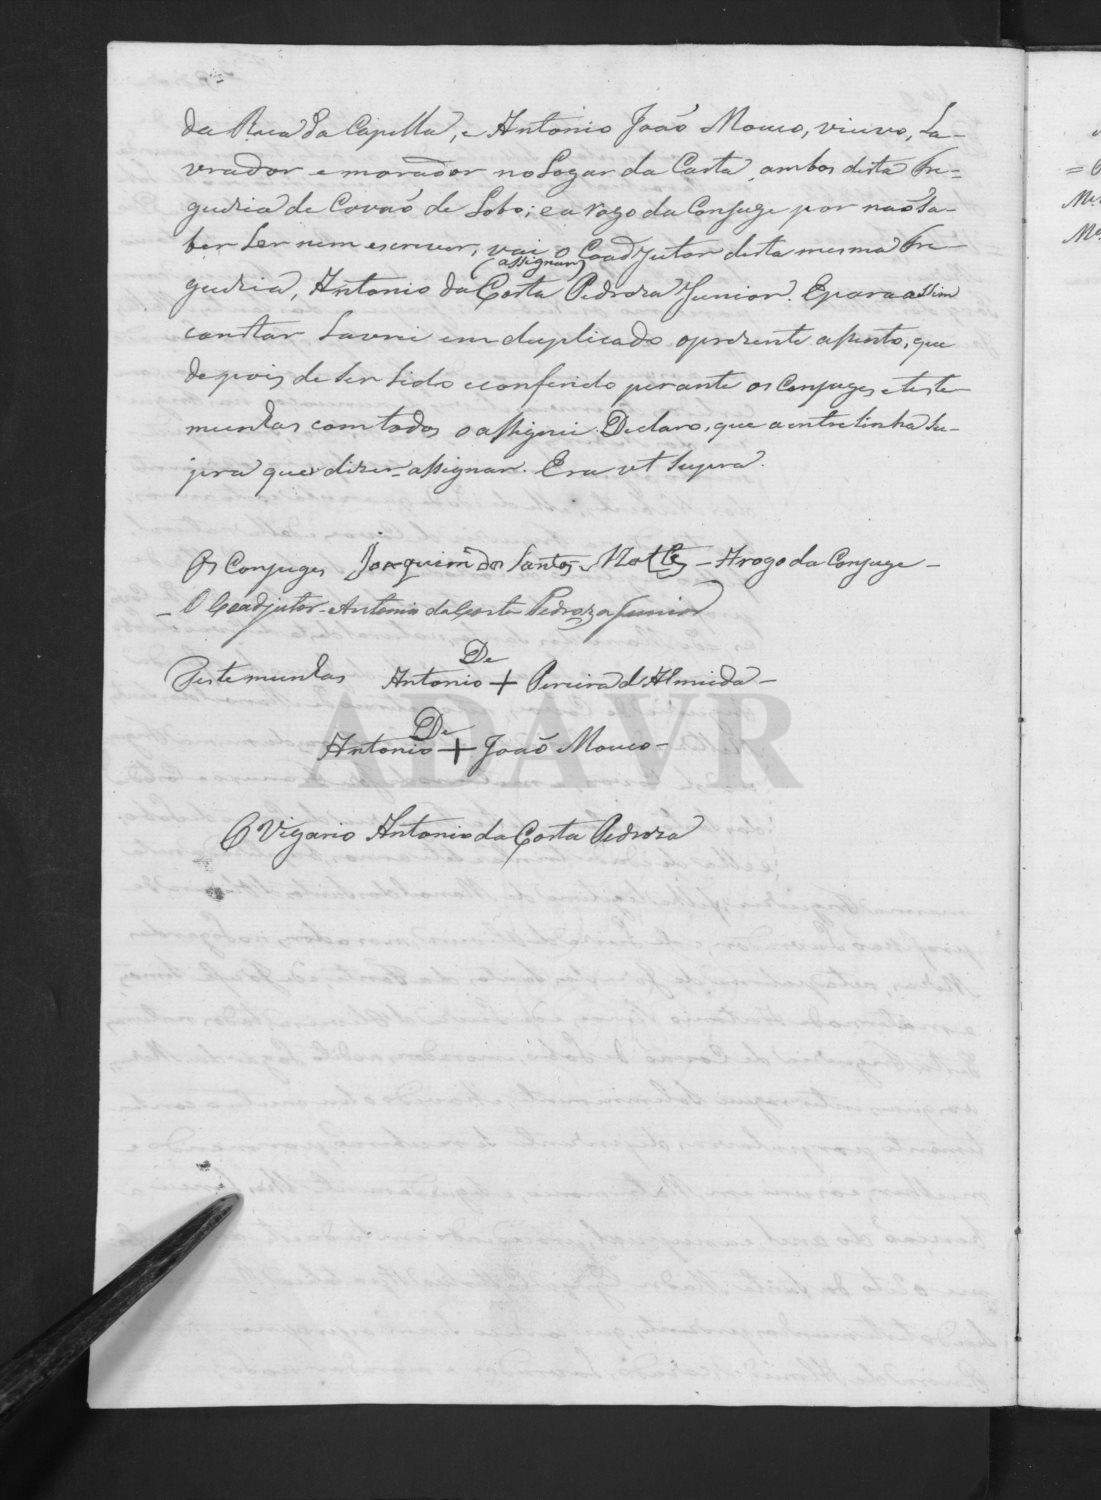 da Rua da Capella, e Antonio João Mouco, viuvo, La-
vrador e morador no Logar da Costa, ambos desta Fre=
guezia de Covão de Lobo; e a rogo da Conjuge por não sa-
ber ler nem escrever, vai o Coadjutor desta mesma Fre
(assignar)
guezia, Antonio da Costa Pedroza Junior. E para assim
constar lavrei em duplicado o prezente assento, que
depois de ser lido e conferido perante os Conjuges e teste
munhas com todos o assignei. Declaro, que a entrelinha su-
pra quer dizer = assignar. Era ut supra.
Os Conjuges Joaquim dos Santos - A rogo da Conjuge -
- O Coadjutor - Antonio da Costa Pedroza Junior
De
Testemunhas Antonio + Pereira d'Almeida -
De
Antonio + João Mouco -
ADAVR
O Vigario Antonio da Costa Pedroza